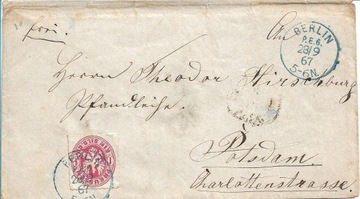 frei.
An
BERLIN
P.E.6.
28/9
67
5-6N.
Herrn Theodor Hirschburg
Pfandleihe.
Potsdam.
Charlottenstrasse.
BERLIN
28/9
67